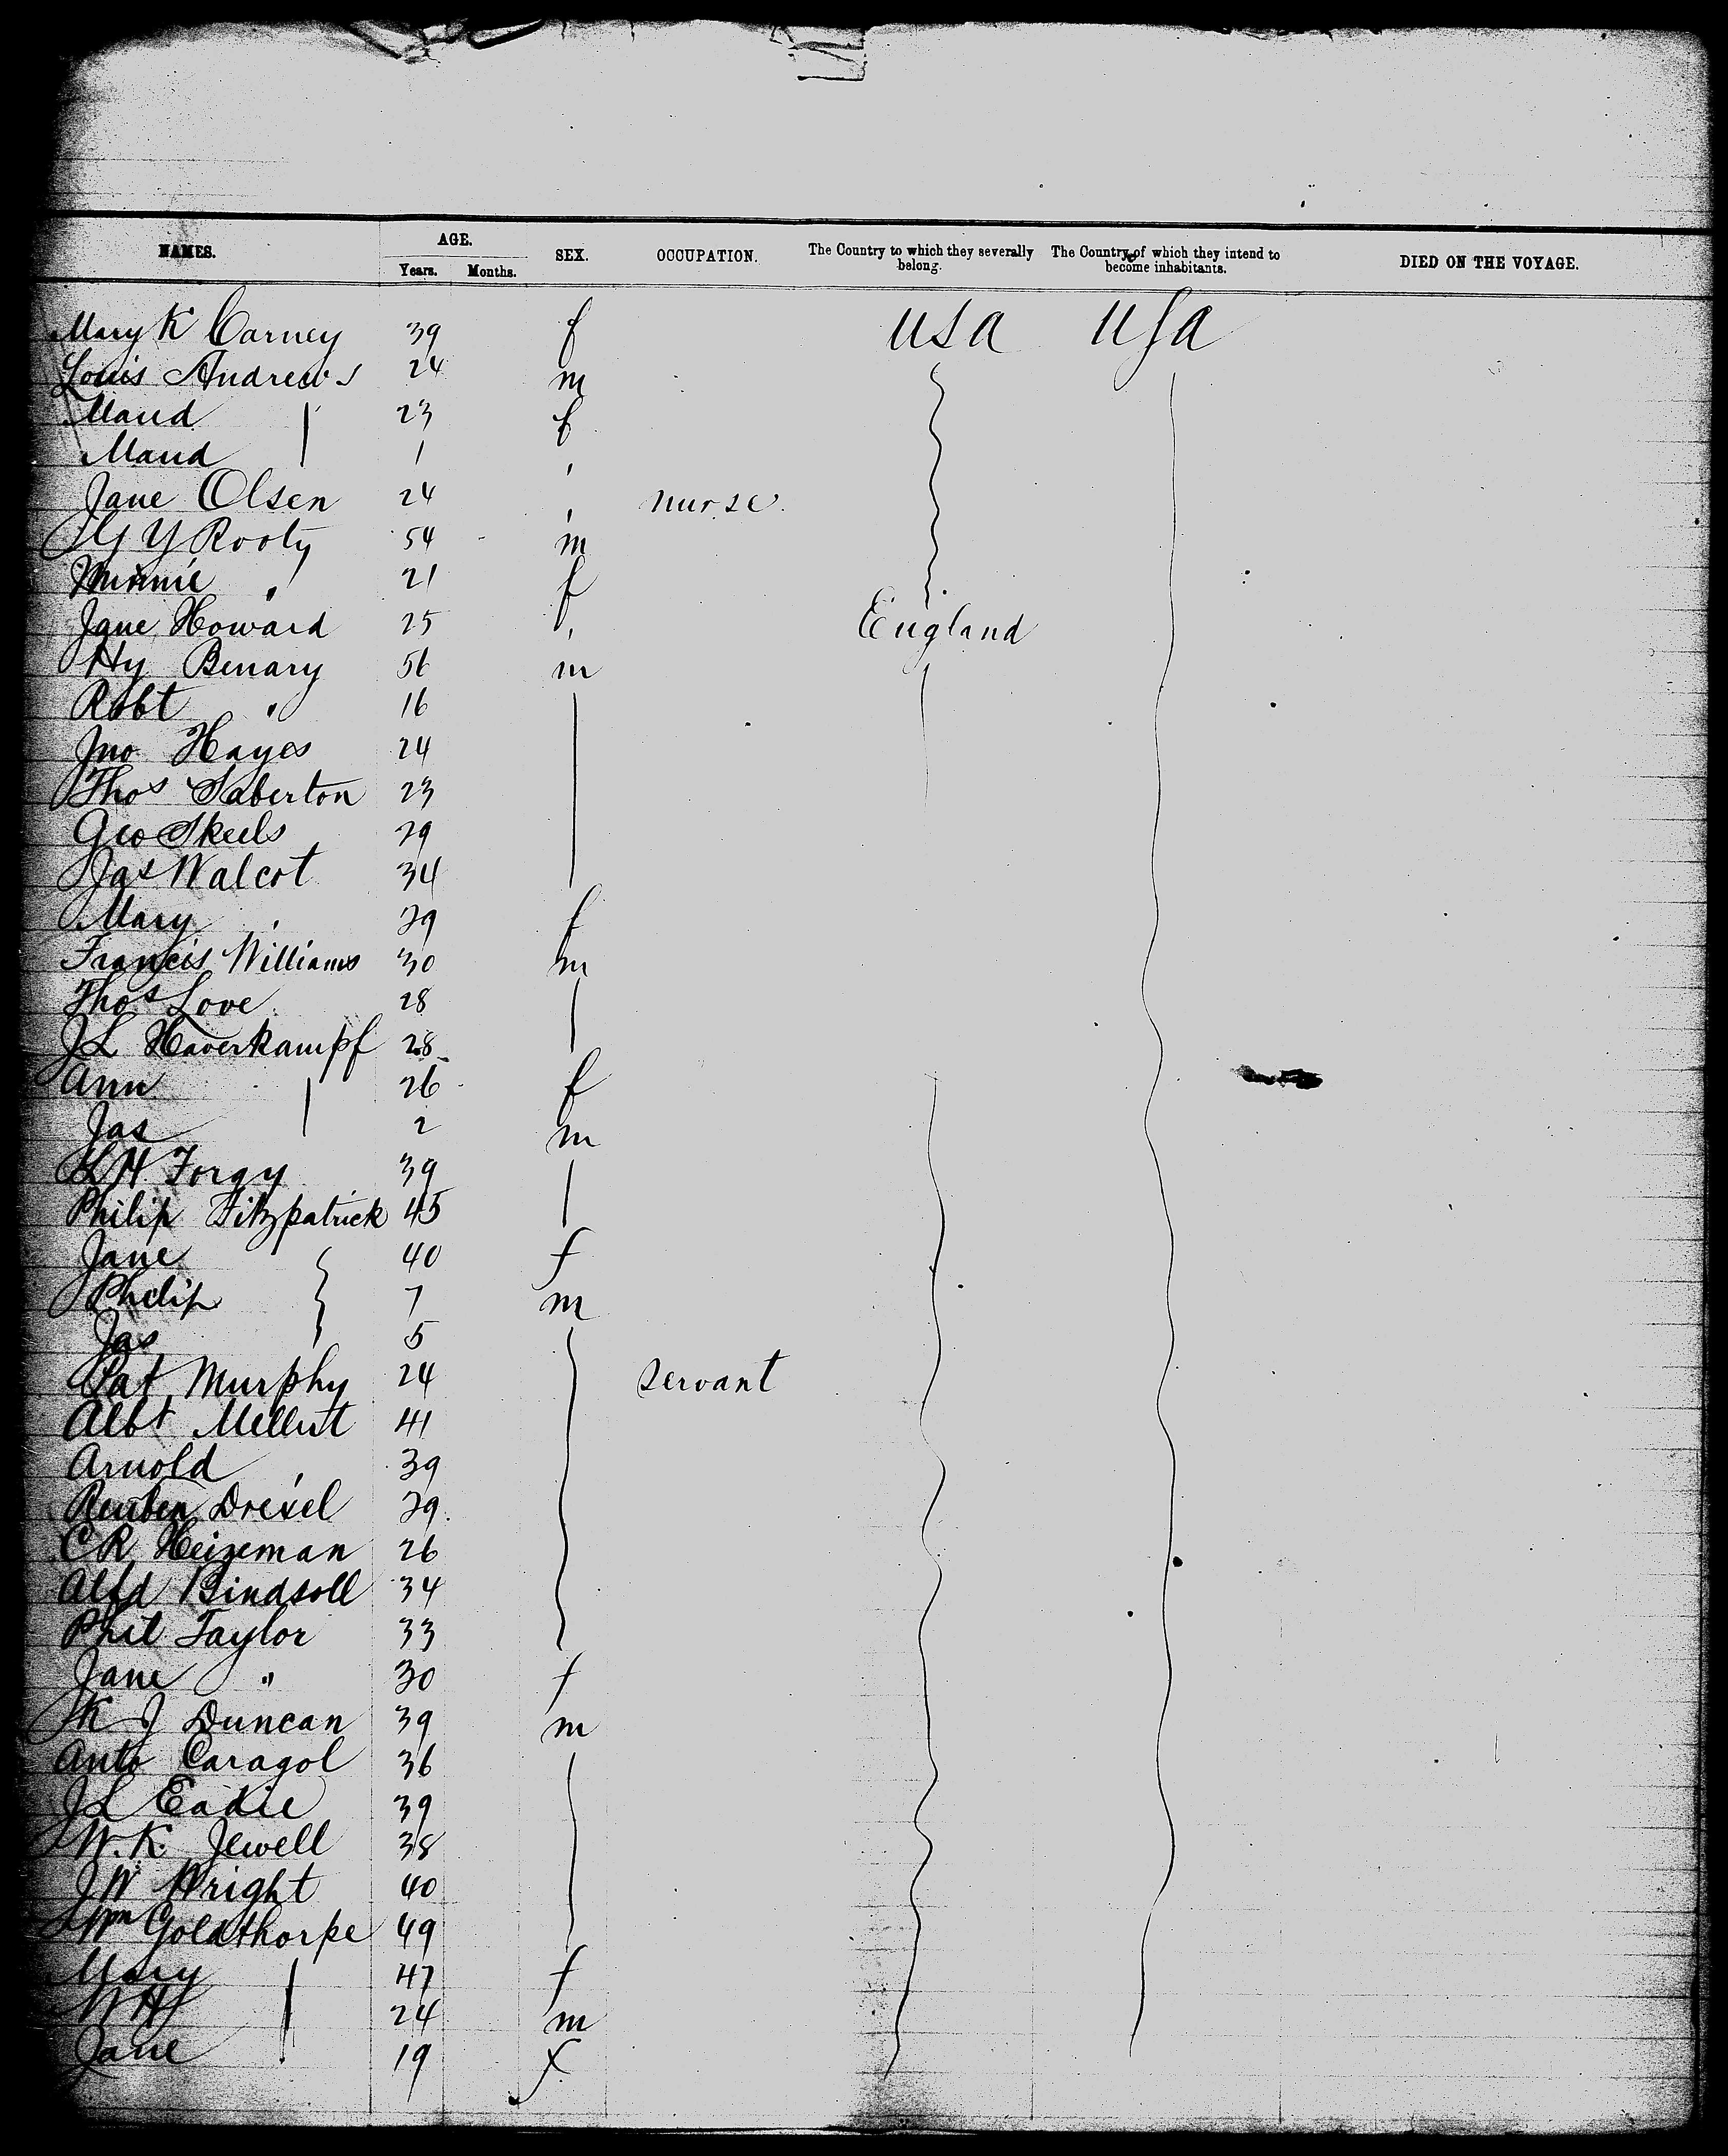 NAMES. AGE. SEX. OCCUPATION. The Country to which they severally belong. The Country of which they intend to become inhabitants. DIED ON THE VOYAGE.
Years. Months.
Mary K Carney 39 f USA USA
Louis Andrews 24 m
Maud 23 f
Maud 1 "
Jane Olsen 24 " nurse
Y Rooty 54 m
Minnie " 21 f
Jane Howard 25 " England
Hy Benary 56 m
Robt " 16
Jno Hayes 24
Thos Saberton 23
Geo Skeels 29
Jas Walcot 34
Mary " 29 f
Francis Williams 30 m
Thos Love 28
JL Haverkampf 28
Ann 26 f
Jas 2 m
LH Forgy 39
Philip Fitzpatrick 45
Jane 40 f
Philip 7 m
Jas 5
Pat Murphy 24 servant
Albt Mellut 41
Arnold " 39
Reuben Drexel 29
CR Heizeman 26
Alfd Bindsoll 34
Phil Taylor 33
Jane " 30 f
K J Duncan 39 m
Anto Caragol 36
JL Eadie 39
W.K. Jewell 38
JW Wright 40
Wm Goldthorpe 49
Mary 47 f
WH 24 m
Jane 19 f